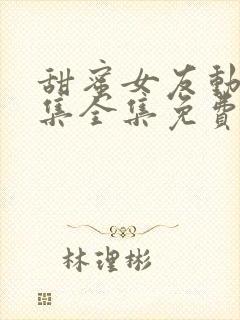 甜蜜女友動
集全集免費
林理彬